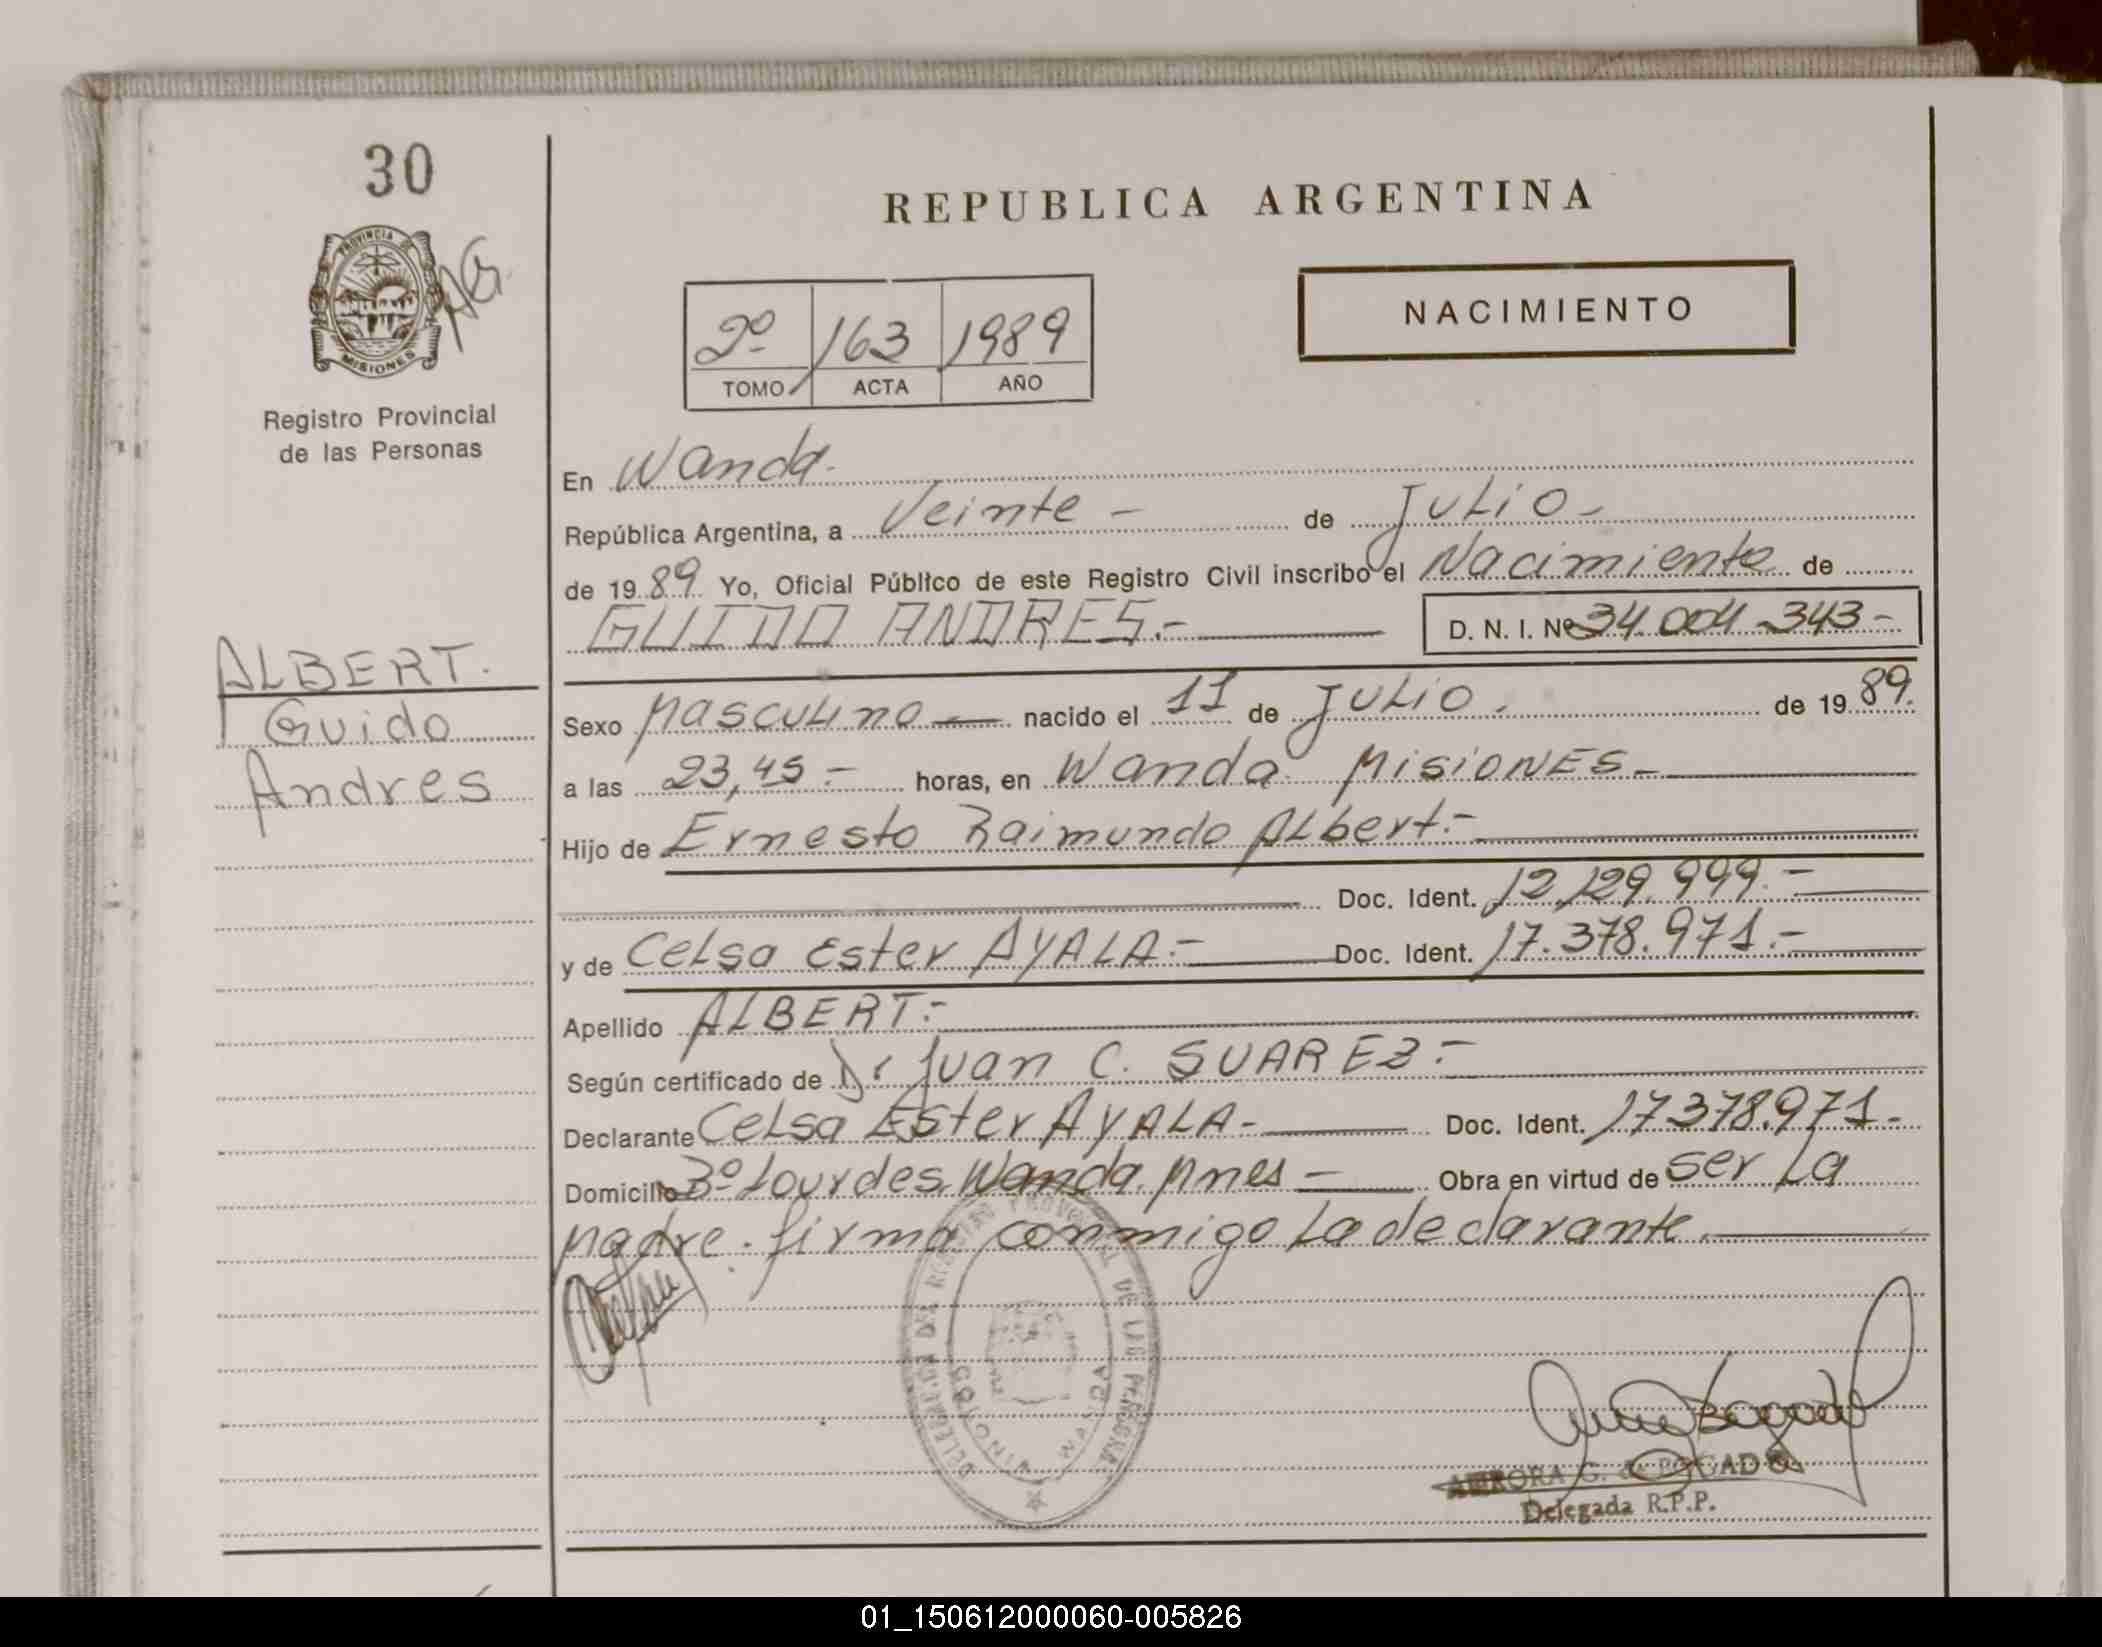 30
PROVINCIA DE
MISIONES
Registro Provincial
de las Personas
ALBERT.
Guido
Andres
REPUBLICA ARGENTINA
NACIMIENTO
2º 163 1989
TOMO ACTA AÑO
En Wanda.
República Argentina, a Veinte - de Julio -
de 1989 Yo, Oficial Público de este Registro Civil inscribo el Nacimiento de
GUIDO ANDRES.- D. N. I. Nº 34.004.343-
Sexo Masculino nacido el 11 de Julio. de 1989.
a las 23,45.- horas, en Wanda Misiones-
Hijo de Ernesto Raimundo Albert.-
Doc. Ident. 12.129.999.-
y de Celsa Ester AYALA.- Doc. Ident. 17.378.971.-
Apellido ALBERT.-
Según certificado de Dr Juan C. SUAREZ.-
Declarante Celsa Ester AYALA- Doc. Ident. 17.378.971-
Domicilio Bº Lourdes, Wanda. Mnes - Obra en virtud de ser La
Madre. firma conmigo La declarante.
DELEGACION DEL REGISTRO PROVINCIAL DE LAS PERSONAS
MISIONES WANDA
AURORA G. de BOGADO
Delegada R.P.P.
01_150612000060-005826